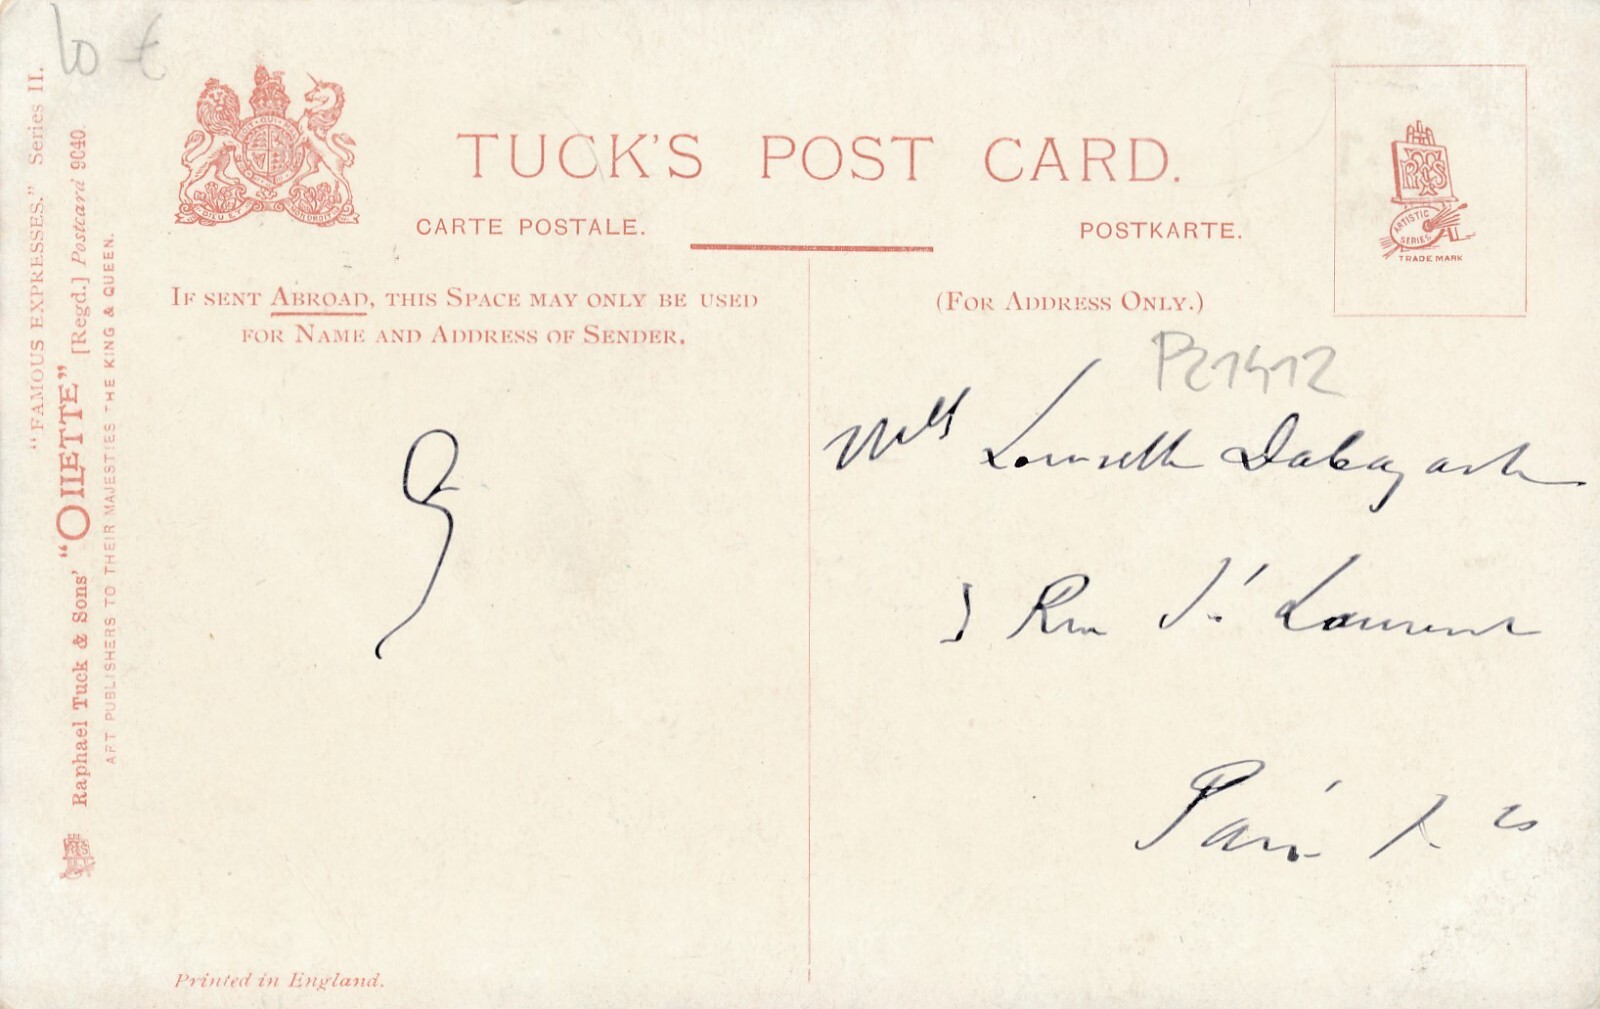 "FAMOUS EXPRESSES." Series II.
Raphael Tuck & Sons' "OILETTE" [Regd.] Postcard 9040.
ART PUBLISHERS TO THEIR MAJESTIES THE KING & QUEEN.
DIEU ET MON DROIT
TUCK'S POST CARD.
CARTE POSTALE.
POSTKARTE.
ARTISTIC
SERIES
TRADE MARK
IF SENT ABROAD, THIS SPACE MAY ONLY BE USED
FOR NAME AND ADDRESS OF SENDER.
(FOR ADDRESS ONLY.)
Melle
Rue St Laurent
Paris
Printed in England.